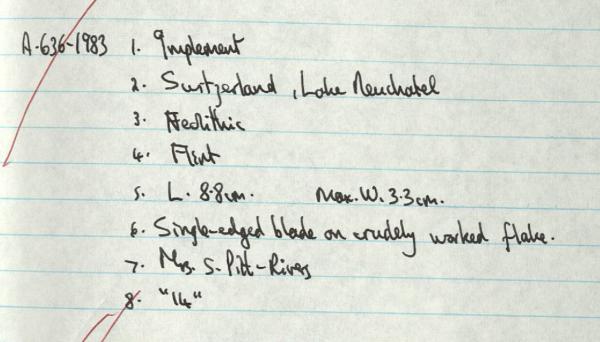 A.636-1983 1. Implement
2. Switzerland, Lake Neuchatel
3. Neolithic
4. Flint
5. L. 8.8cm. Max. W. 3.3cm.
6. Single-edged blade on crudely worked flake.
7. Mrs. S. Pitt-Rivers
8. "14"